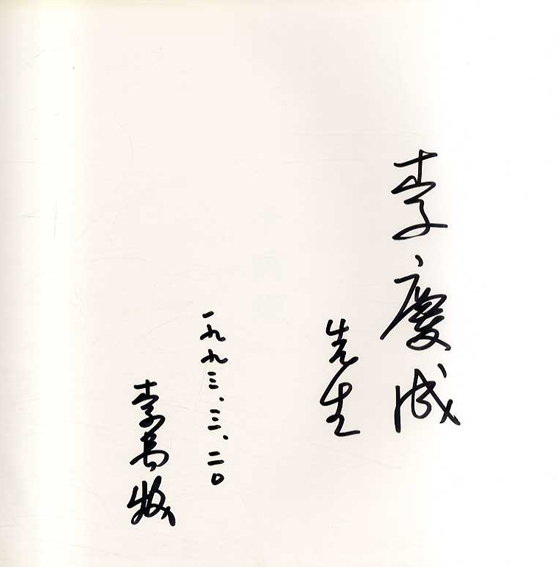 李慶成
先生
一九九三、三、二〇
李